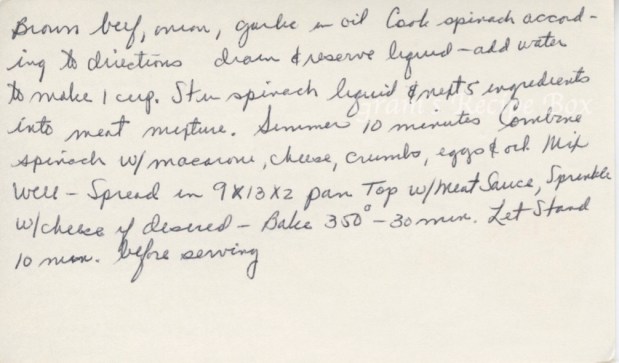 Brown beef, onion, garlic in oil Cook spinach accord-
ing to directions drain & reserve liquid - add water
to make 1 cup. Stir spinach liquid & next 5 ingredients
Gram's Recipe Box
into meat mixture. Simmer 10 minutes Combine
spinach w/macaroni, cheese, crumbs, eggs & oil. Mix
Well - Spread in 9X13X2 pan Top w/Meat Sauce, Sprinkle
w/cheese if desired - Bake 350° - 30 min. Let Stand
10 min. before serving